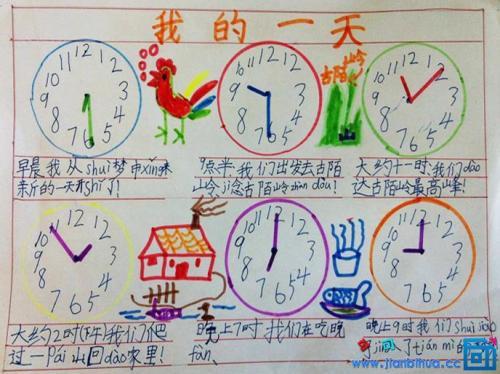 我的一天
古陌岭
12 1 2 3 4 5 6 7 8 9 10 11
12 1 2 3 4 5 6 7 8 9 10 11
12 1 2 3 4 5 6 7 8 9 10 11
早晨我从shuì梦中xǐng来
新的一天开shǐ了!
9点半,我们出发去古陌
岭jì念古陌岭zhàn dòu!
大约十一时,我们dào
达古陌岭最高峰!
12 1 2 3 4 5 6 7 8 9 10 11
12 1 2 3 4 5 6 7 8 9 10 11
12 1 2 3 4 5 6 7 8 9 10 11
大约2时(下午)我们
过一Pái山回dào家里!
晚上7时我们在吃晚
饭。
晚上9时我们shuì jiào
jìn入了tián mì的
www.jianbihua.cc